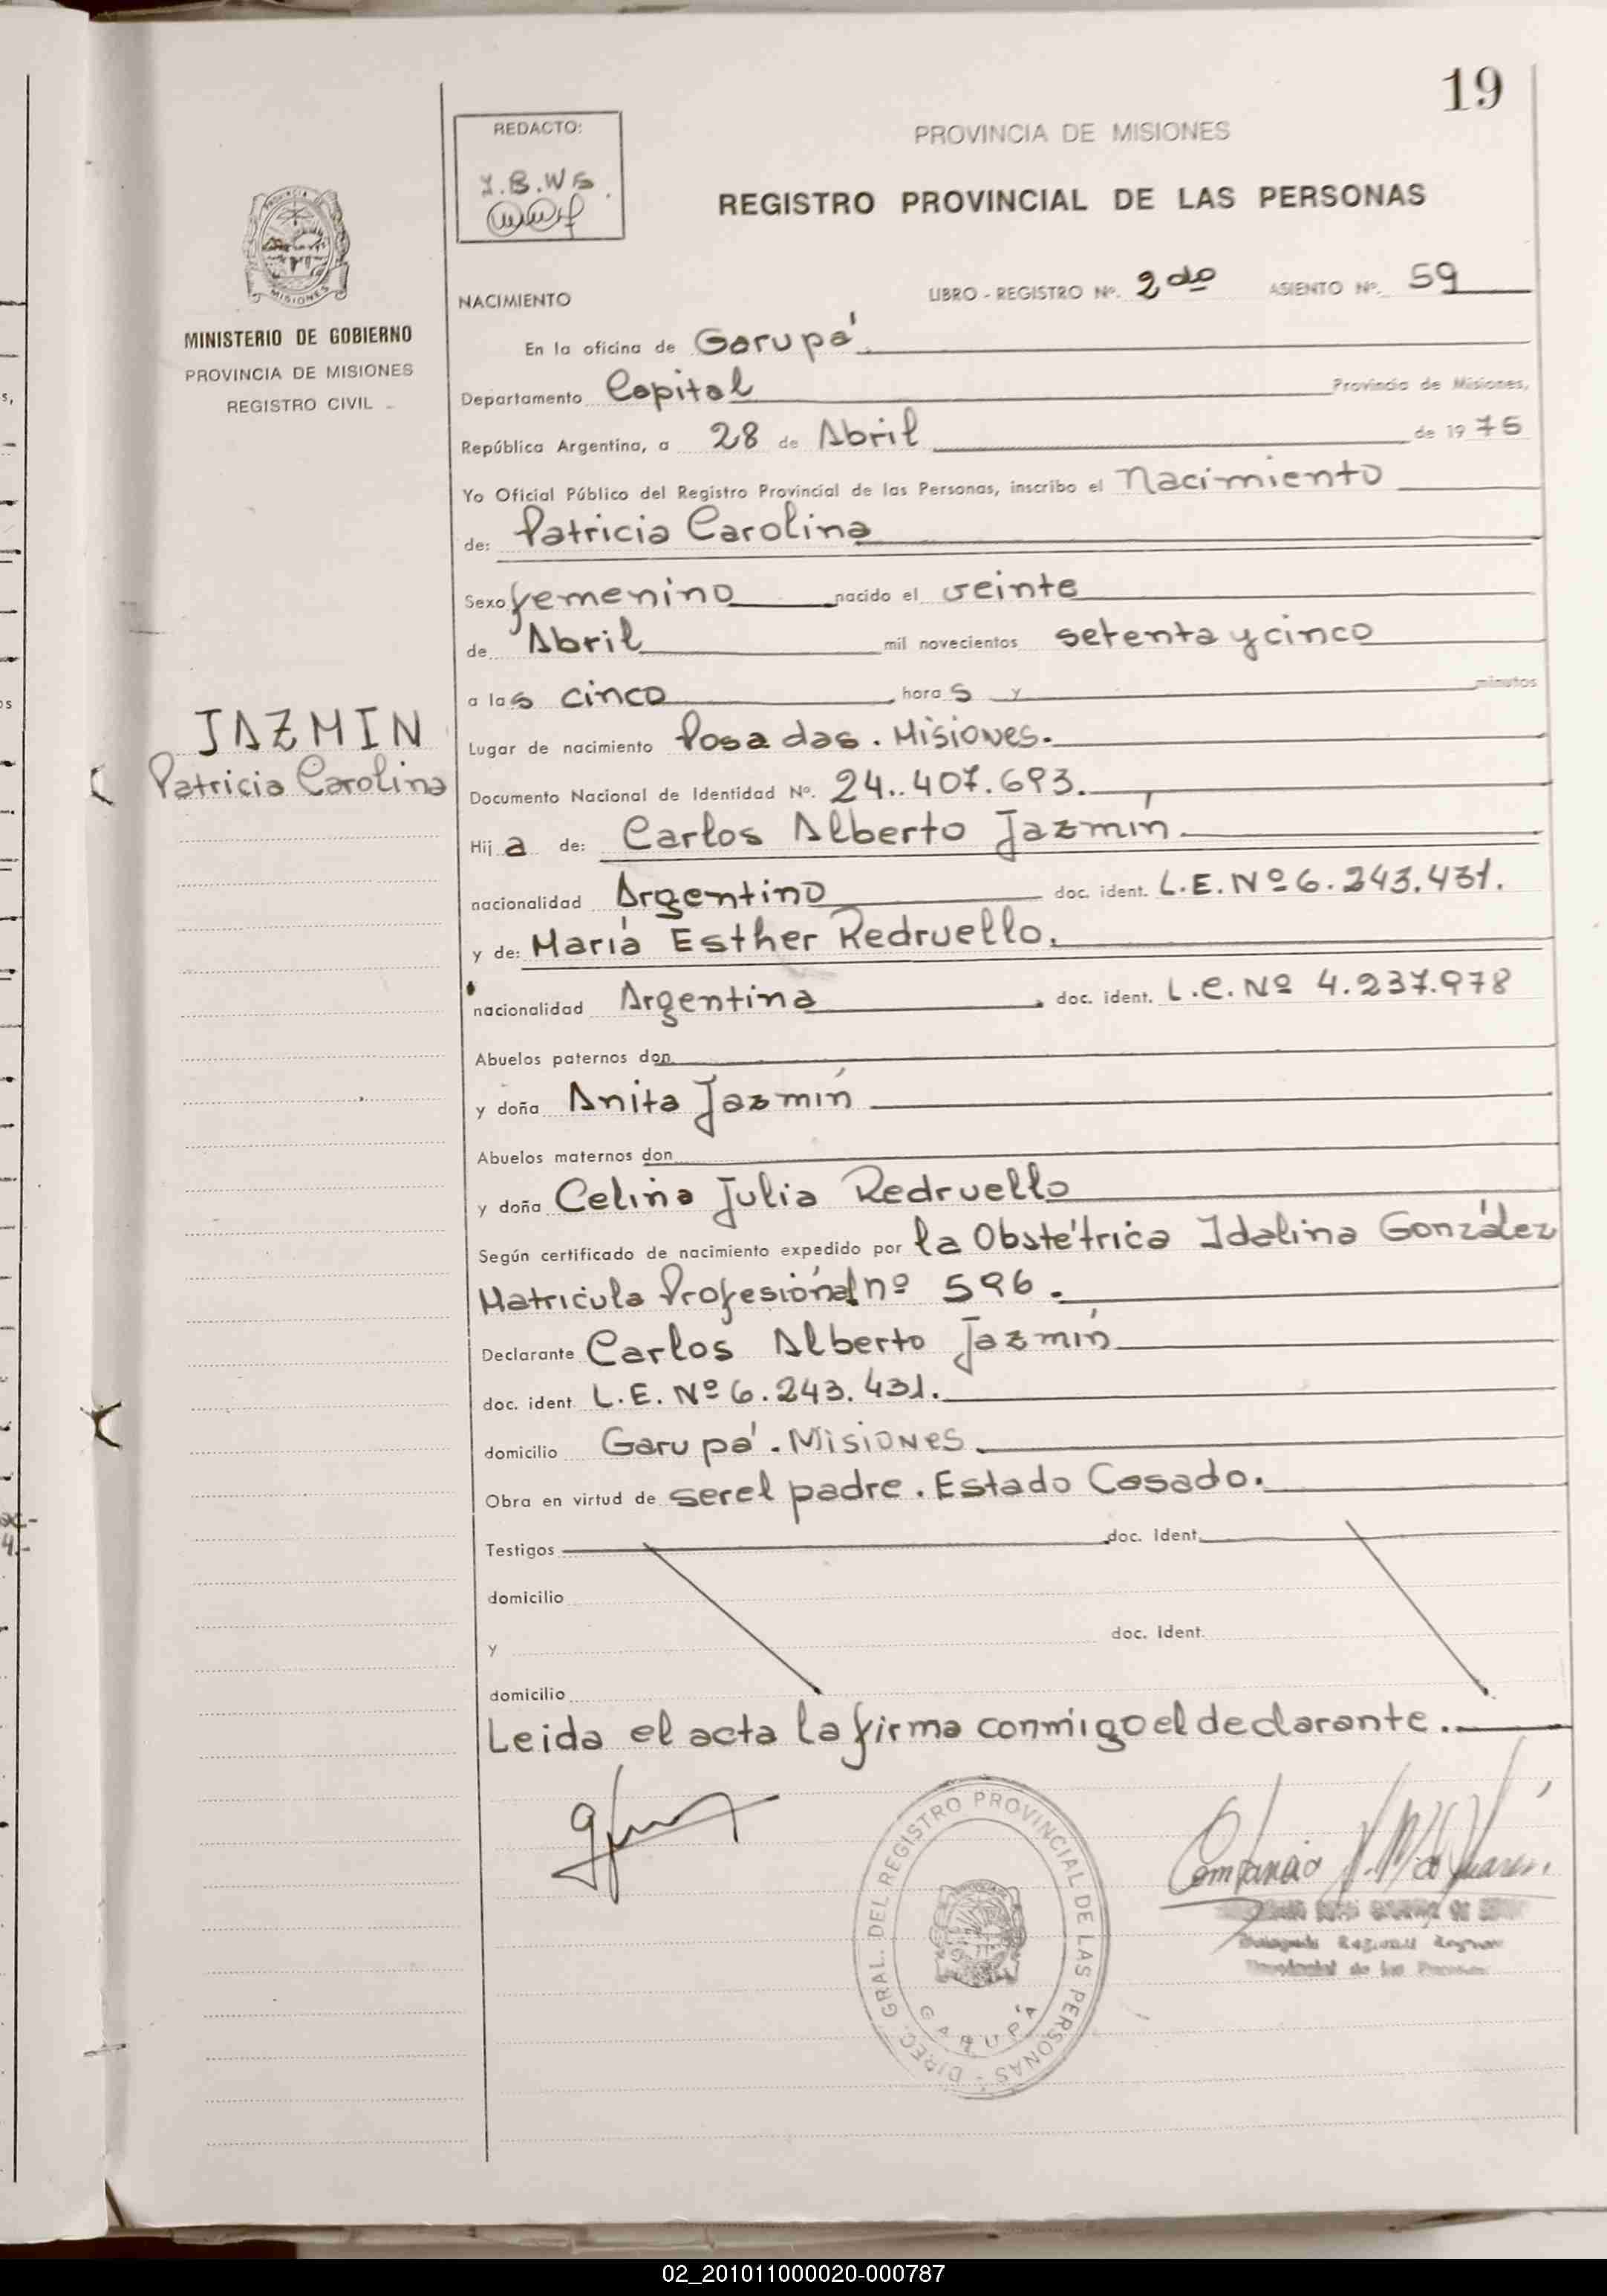 19
REDACTO:
Y.B.W.S.
PROVINCIA DE MISIONES
REGISTRO PROVINCIAL DE LAS PERSONAS
MISIONES
MINISTERIO DE GOBIERNO
PROVINCIA DE MISIONES
REGISTRO CIVIL
NACIMIENTO
LIBRO - REGISTRO Nº. 2do ASIENTO Nº. 59
En la oficina de Garupá.
Departamento Capital Provincia de Misiones,
República Argentina, a 28 de Abril de 1975
Yo Oficial Público del Registro Provincial de las Personas, inscribo el Nacimiento
de: Patricia Carolina
Sexo femenino nacido el veinte
de Abril mil novecientos setenta y cinco
a las cinco horas y minutos
JAZMIN
Patricia Carolina
Lugar de nacimiento Posadas. Misiones.
Documento Nacional de Identidad Nº. 24..407.693.
Hija de: Carlos Alberto Jazmín.
nacionalidad Argentino doc. ident. L.E. Nº 6.243.431.
y de: María Esther Redruello.
nacionalidad Argentina doc. ident. L.C. Nº 4.237.978
Abuelos paternos don
y doña Anita Jazmín
Abuelos maternos don
y doña Celina Julia Redruello
Según certificado de nacimiento expedido por la Obstétrica Idalina González
Matrícula Profesional nº 596.
Declarante Carlos Alberto Jazmín
doc. ident. L.E. Nº 6.243.431.
domicilio Garupá. Misiones.
Obra en virtud de ser el padre. Estado Casado.
Testigos doc. ident.
domicilio
y doc. ident.
domicilio
Leida el acta la firma conmigo el declarante.
DIREC. GRAL. DEL REGISTRO PROVINCIAL DE LAS PERSONAS -
GARUPÁ
02_201011000020-000787